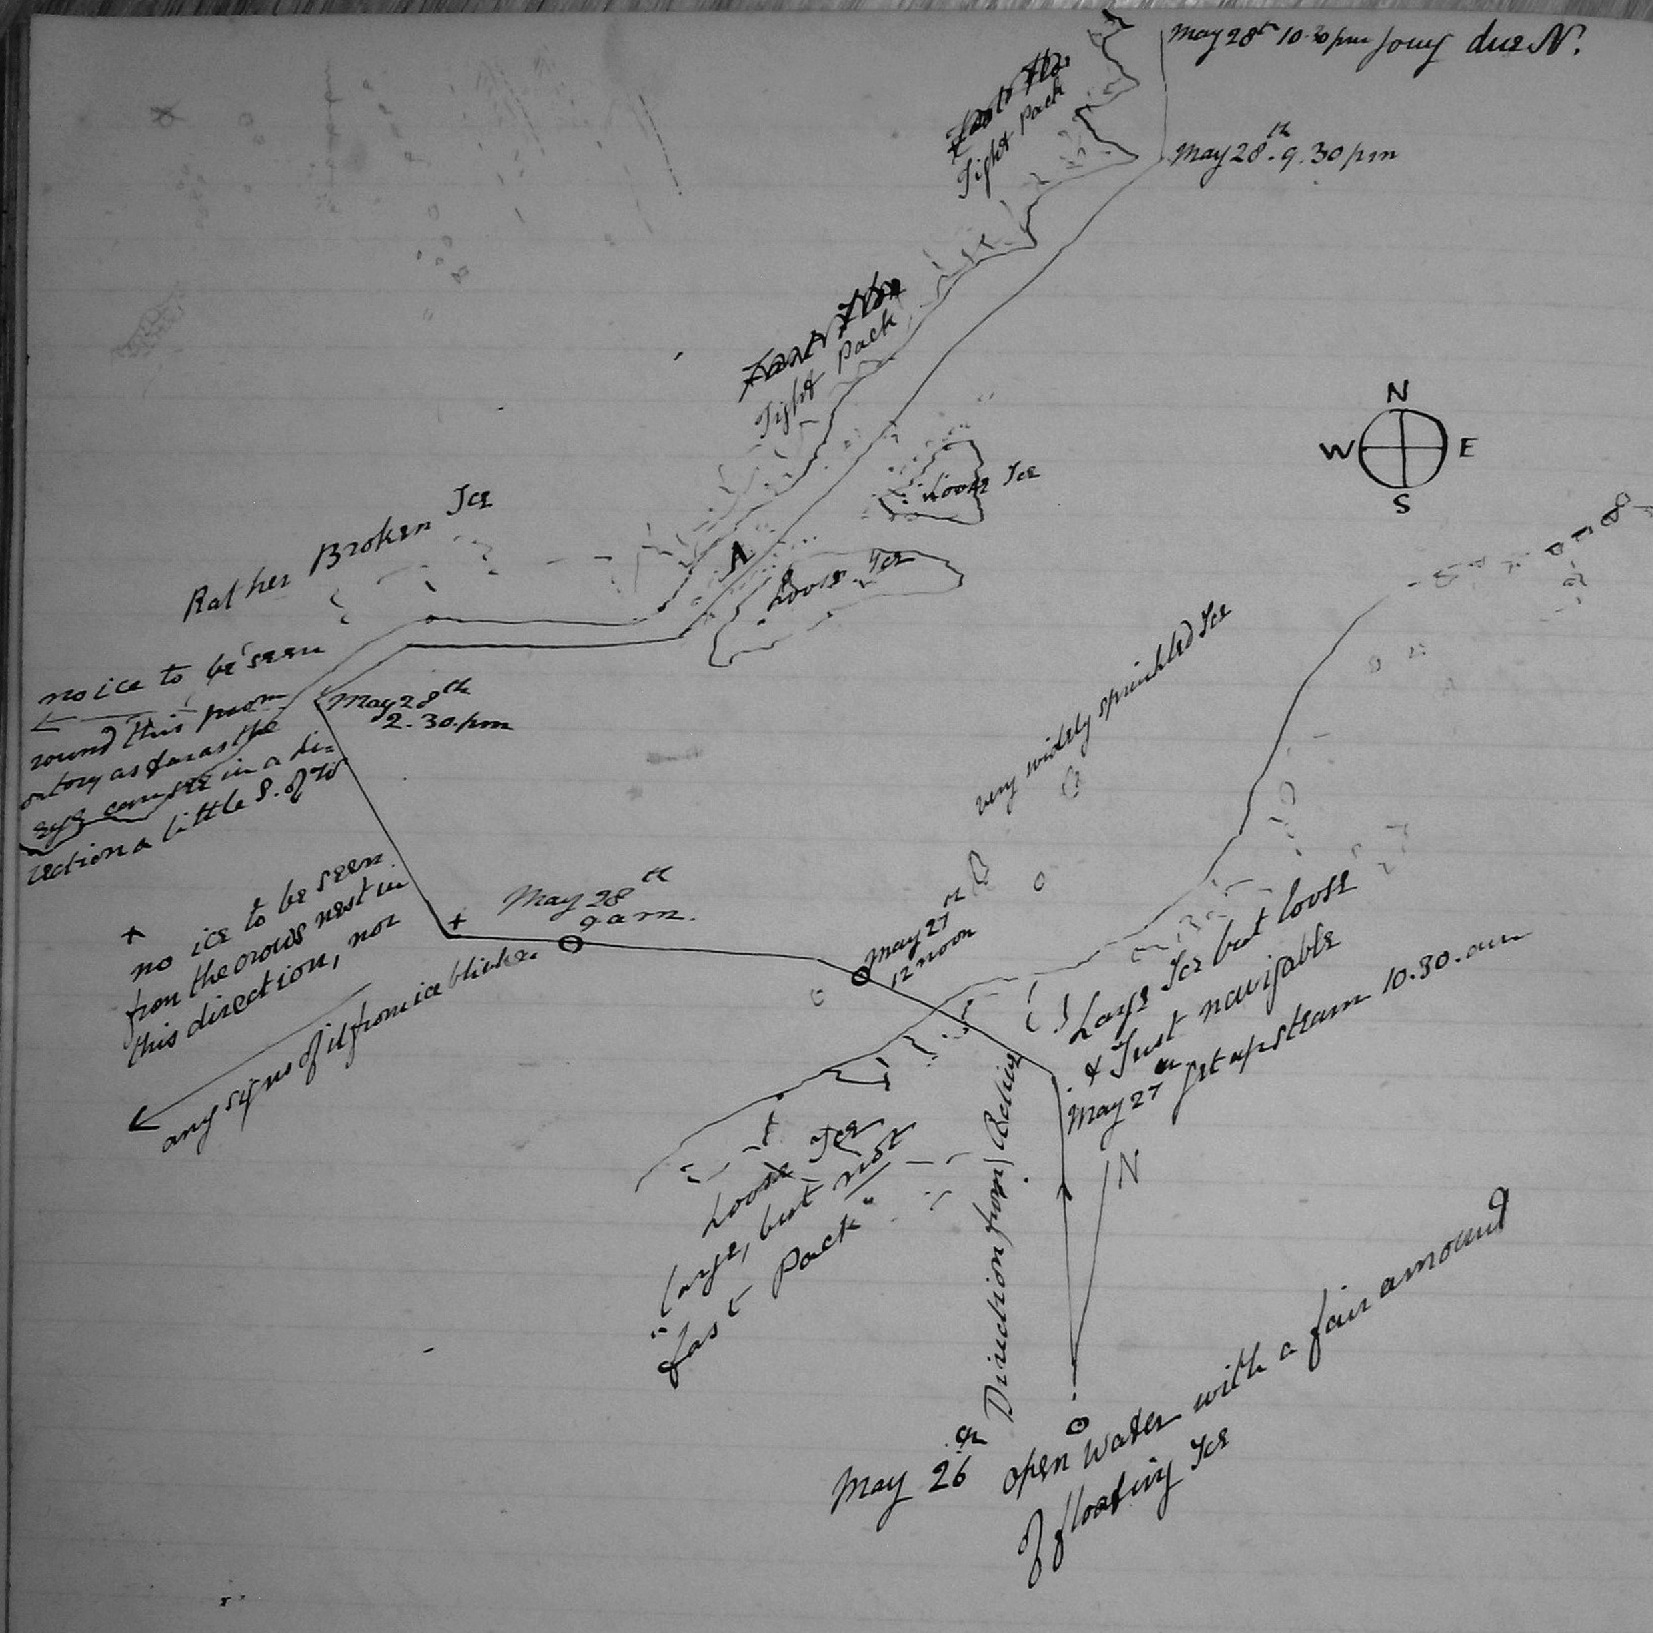 May 28th 10.30 pm going due N.
May 28th. 9.30 pm
Tight Pack
Tight Pack
N
W E
S
Loose Ice
A
Loose Ice
Rather Broken Ice
no ice to be seen
round this prom
ontory as far as the
eye can see in a di=
rection a little S. of W
May 28th
2.30.pm
very widely sprinkled Ice
+
May 28th
9 a m.
+
no ice to be seen
from the crows nest in
this direction, nor
any signs of it from ice blink.
May 27th
12 noon
Large Ice but loose
& Just navigable
May 27th get up steam 10.30. am
Loose Ice
"large, but not
fast Pack"
Direction from
N
May 26th
open water with a fair amount
of floating Ice